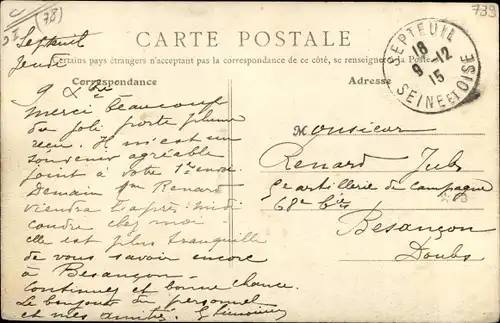 (78)
739
CARTE POSTALE
Certains pays étrangers n'acceptant pas la correspondance de ce côté, se renseigner à la Poste
Correspondance
Adresse
SEPTEUIL
18
9 -12
15
SEINE ET OISE
Septeuil
Jeudi
9 Xbre
Merci beaucoup
du joli porte plume
reçu. Il m'est un
souvenir agréable
joint à votre 1er envoi.
Demain Mme Renard
viendra l'après-midi
coudre chez moi
elle est plus tranquille
de vous savoir encore
à Besançon.
Continuez et bonne chance.
Le bonjour du personnel
et mes amitiés.
Monsieur
Renard Jules
5e artillerie de campagne
68e bie
Besançon
Doubs